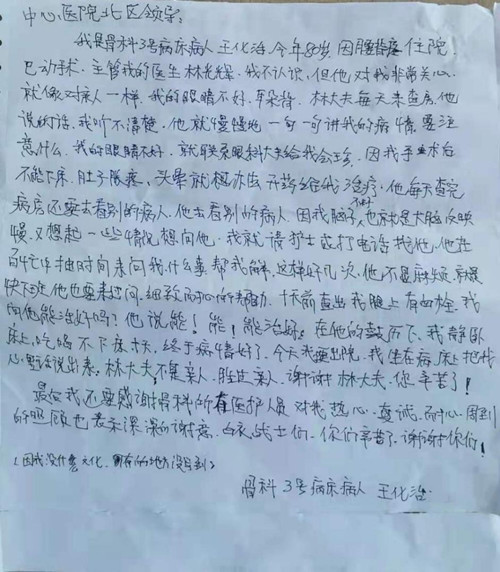 中心医院北区领导:
我是骨科3号病床病人王化治.今年80岁.因腰椎疼住院.
已动手术.主管我的医生林光辉.我不认识.但他对我非常关心.
就像对亲人一样.我的眼睛不好.耳朵背.林大夫每天来查房.他
说的话.我听不清楚.他就慢慢地一句一句讲我的病情.要注
意什么.我的眼睛不好.就联系眼科大夫给我会诊.因我手术后
不能下床.肚子胀疼、头晕就想办法开药给我治疗.他每天查完
病房还要去看别的病人.他去看别的病人.因我脑子不好也就是大脑反映
慢.又想起一些情况想问他.我就请护士或打电话找他.他在
百忙中抽时间来问我.什么事帮我解.这样好几次.他不是麻烦.就是
快下班他也要来过问.细致而耐心的帮助.十天前查出我腿上有血栓.我
问他能治好吗?他说能!能!能治好.在他的鼓励下.我静卧
床上.吃喝不下床十天.终于病情好了.今天我要出院.我坐在病床上把我
心里话说出来.林大夫不是亲人.胜过亲人.谢谢林大夫.您辛苦了!
最后我还要感谢骨科所有医护人员对我热心.真诚.耐心.周到
的照顾也表示深深的谢意.白衣战士们.你们辛苦了.谢谢你们!
(因我没什么文化.有的地方没写到)
骨科3号病床病人 王化治.